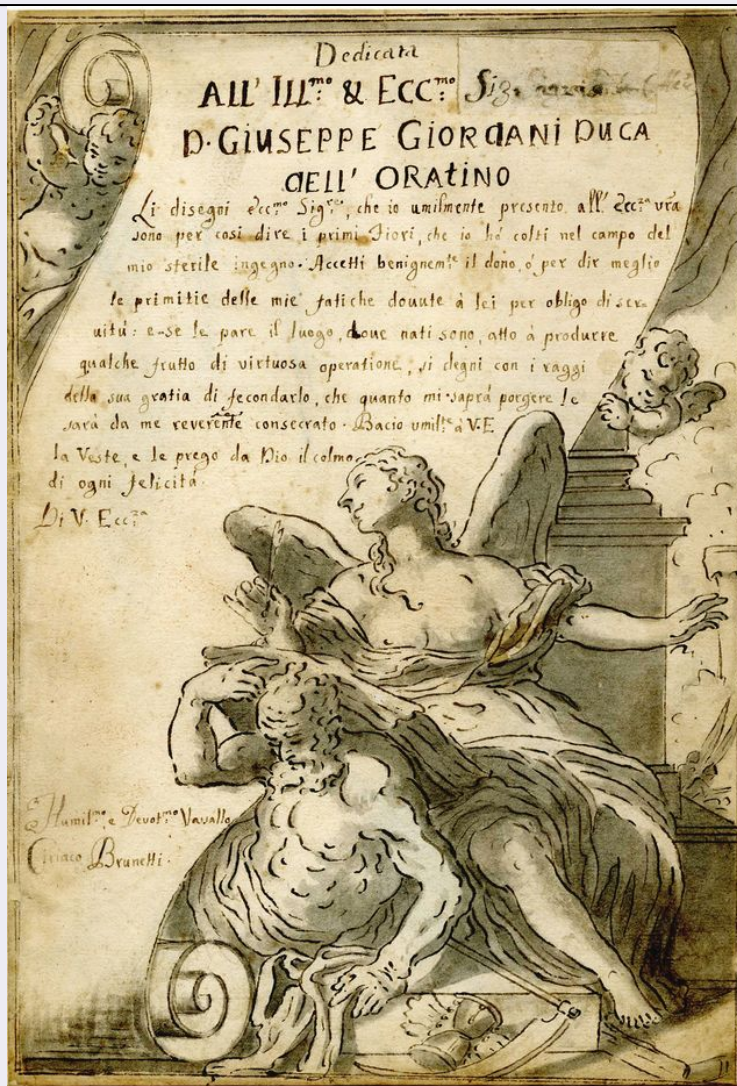 Dedicata
ALL' ILL.mo & ECC.mo Sig.
D. GIUSEPPE GIORDANI DUCA
DELL' ORATINO
Li disegni ecc.mo Sig.re, che io umilmente presento all' Ecc.za vra
sono per così dire i primi Fiori, che io hò colti nel campo del
mio sterile ingegno. Accetti benignem.te il dono, ò per dir meglio
le primitie delle mie fatiche douute à lei per obligo di ser-
uitù: e se le pare il luogo, doue nati sono, atto à produrre
qualche frutto di virtuosa operatione, si degni con i raggi
della sua gratia di fecondarlo, che quanto mi saprà porgere le
sarà da me reverente consecrato. Bacio umil.te à V.E
la Veste, e le prego da Dio il colmo
di ogni felicità
Di V. Ecc.za
Humil.mo e Devot.mo Vassallo
Ciriaco Brunetti.